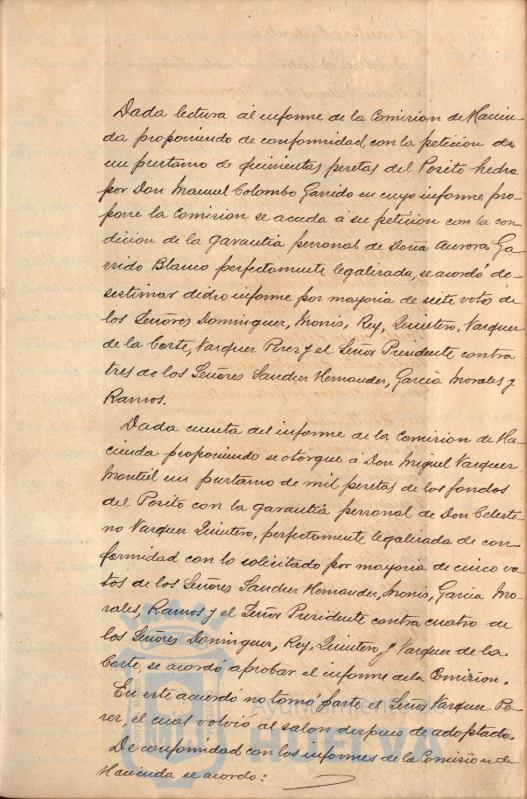 Dada lectura al informe de la Comision de Hacien-
da proponiendo de conformidad con la peticion de
un prestamo de quinientas pesetas del Posito hecha
por Don Manuel Colombo Garrido en cuyo informe pro-
pone la Comision se acceda á su peticion con la con-
dicion de la garantia personal de Doña Aurora Ga-
rrido Blanco perfectamente legalizada, se acordó de-
sestimar dicho informe por mayoria de siete votos de
los Señores Dominguez, Monis, Rey, Quintero, Vazquez
de la Corte, Vazquez Perez y el Señor Presidente contra
tres de los Señores Sanchez Hernandez, Garcia Morales y
Ramos.
Dada cuenta del informe de la Comision de Ha-
cienda proponiendo se otorgue á Don Miguel Vazquez
Montiel un prestamo de mil pesetas de los fondos
del Posito con la garantia personal de Don Celesti-
no Vazquez Quintero, perfectamente legalizada de con-
formidad con lo solicitado por mayoria de cinco vo-
tos de los Señores Sanchez Hernandez, Monis, Garcia Mo-
rales, Ramos y el Señor Presidente contra cuatro de
los Señores Dominguez, Rey, Quintero y Vazquez de la
Corte, se acordó aprobar el informe de la Comision.
En este acuerdo no tomó parte el Señor Vazquez Pe-
rez, el cual volvió al salon despues de adoptado.
De conformidad con los informes de la Comision de
Hacienda se acordo:
Ayuntamiento de
HUELVA